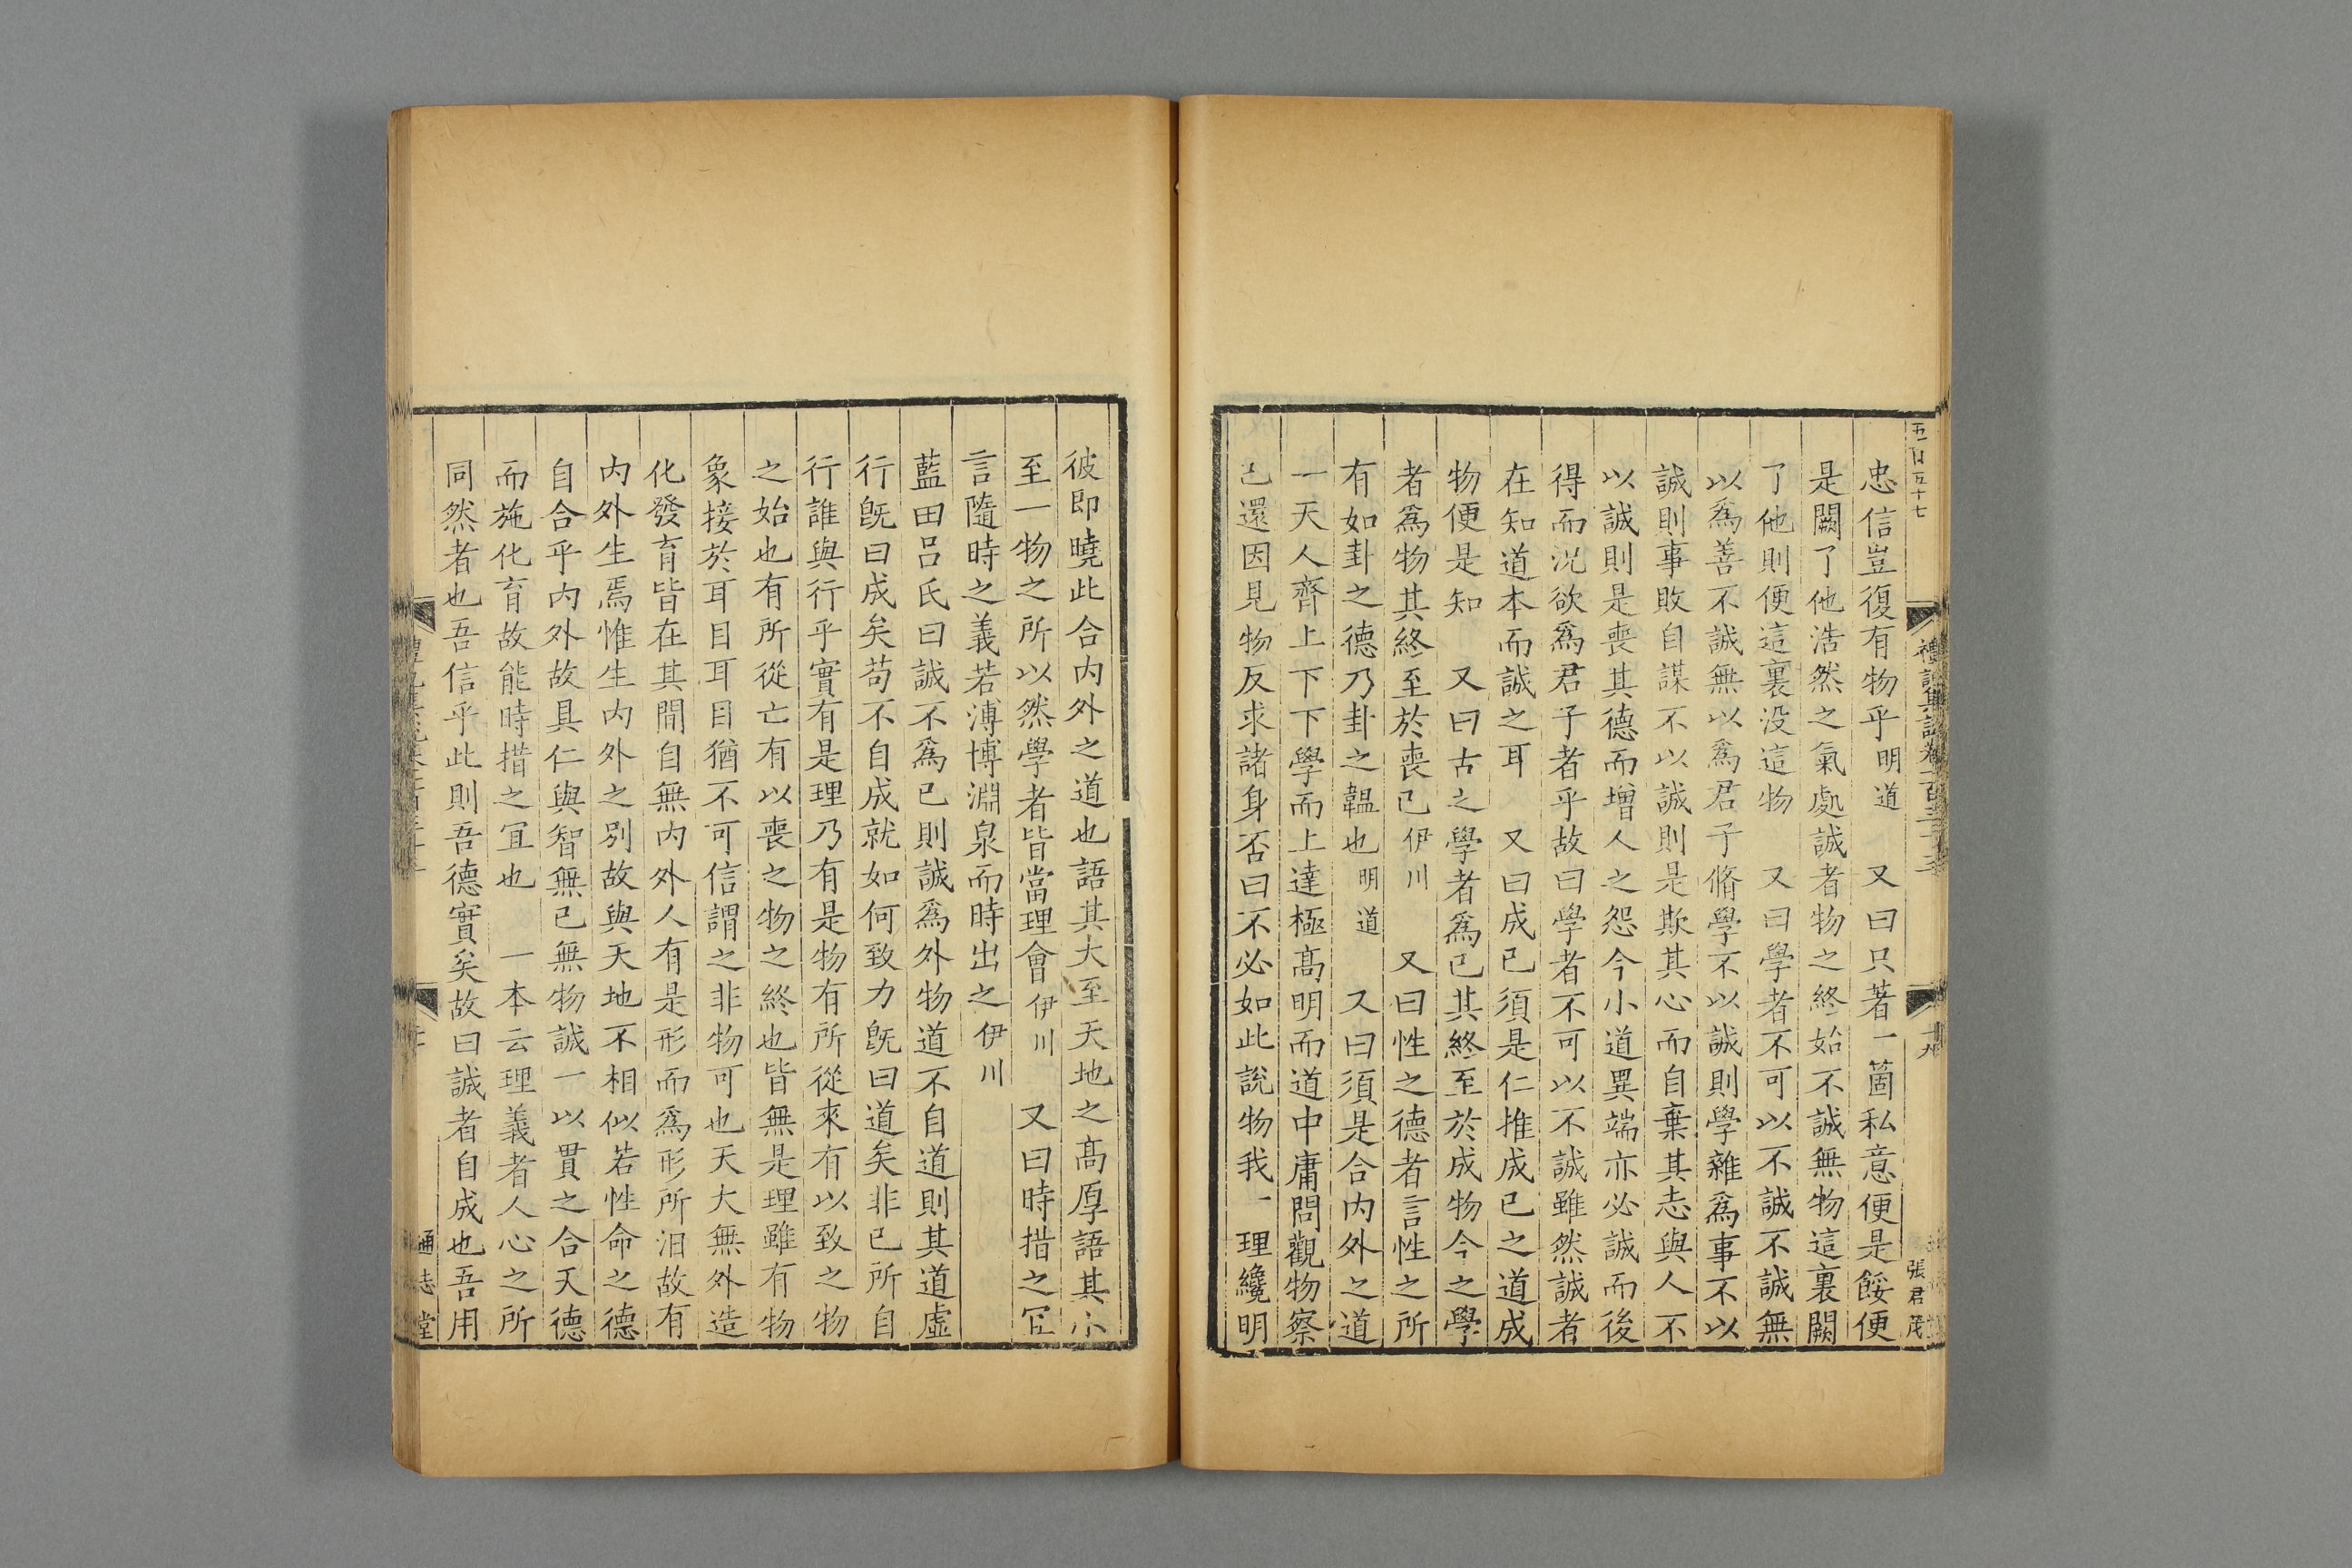 忠信豈復有物乎明道　又曰只著一箇私意便是餒便
是闕了他浩然之氣處誠者物之終始不誠無物這裏闕
了他則便這裏没這物　又曰學者不可以不誠不誠無
以爲善不誠無以爲君子脩學不以誠則學雜爲事不以
誠則事敗自謀不以誠則是欺其心而自棄其志與人不
以誠則是喪其德而增人之怨今小道異端亦必誠而後
得而況欲爲君子者乎故曰學者不可以不誠雖然誠者
在知道本而誠之耳　又曰成已須是仁推成已之道成
物便是知　又曰古之學者爲已其終至於成物今之學
者爲物其終至於喪已伊川　又曰性之德者言性之所
有如卦之德乃卦之韞也明道　又曰須是合内外之道
一天人齊上下下學而上達極髙明而道中庸問觀物察
已還因見物反求諸身否曰不必如此說物我一理纔明
彼即曉此合内外之道也語其大至天地之髙厚語其小
至一物之所以然學者皆當理會伊川　又曰時措之宐
言隨時之義若溥博淵泉而時出之伊川
藍田吕氏曰誠不爲已則誠爲外物道不自道則其道虛
行旣曰成矣苟不自成就如何致力旣曰道矣非已所自
行誰與行乎實有是理乃有是物有所從來有以致之物
之始也有所從亡有以喪之物之終也皆無是理雖有物
象接於耳目耳目猶不可信謂之非物可也天大無外造
化發育皆在其間自無内外人有是形而爲形所汨故有
内外生焉惟生内外之别故與天地不相似若性命之德
自合乎内外故具仁與智無已無物誠一以貫之合天德
而施化育故能時措之宐也　一本云理義者人心之所
同然者也吾信乎此則吾德實矣故曰誠者自成也吾用
禮記集說卷一百三十三
十九
張君茂
通志堂